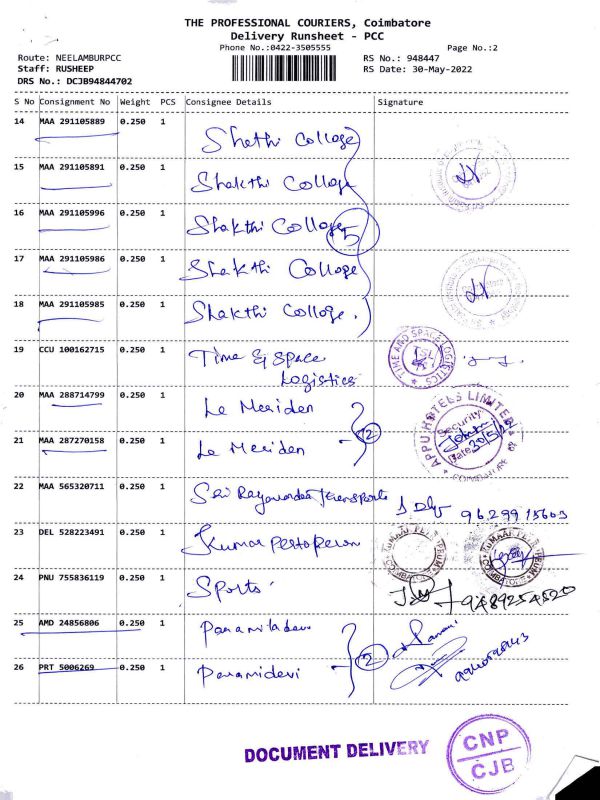 THE PROFESSIONAL COURIERS, Coimbatore
Delivery Runsheet - PCC
Phone No.:0422-3505555
Page No.:2
Route: NEELAMBURPCC
RS No.: 948447
Staff: RUSHEEP
RS Date: 30-May-2022
DRS No.: DCJB94844702
S No Consignment No Weight PCS Consignee Details Signature
14 MAA 291105889 0.250 1 Shethi College
15 MAA 291105891 0.250 1 Shakthi College
16 MAA 291105996 0.250 1 Shakthi College 5
17 MAA 291105986 0.250 1 Shakthi College
18 MAA 291105985 0.250 1 Shakthi College.
19 CCU 100162715 0.250 1 Time & Space
Logistics
TIME AND SPACE LOGISTICS
TSL
20 MAA 288714799 0.250 1 Le Meriden
2
APPU HOTELS LIMITED
Security
Date 30/5/22
COIMBATORE
21 MAA 287270158 0.250 1 Le Meriden
22 MAA 565320711 0.250 1 Sri Transports
23 DEL 528223491 0.250 1 Kumar
COIMBATORE
24 PNU 755836119 0.250 1 Sports
9489254520
25 AMD 24856806 0.250 1
26 PRT 5006269 0.250 1 Panamidevi
2
DOCUMENT DELIVERY
CNP
CJB